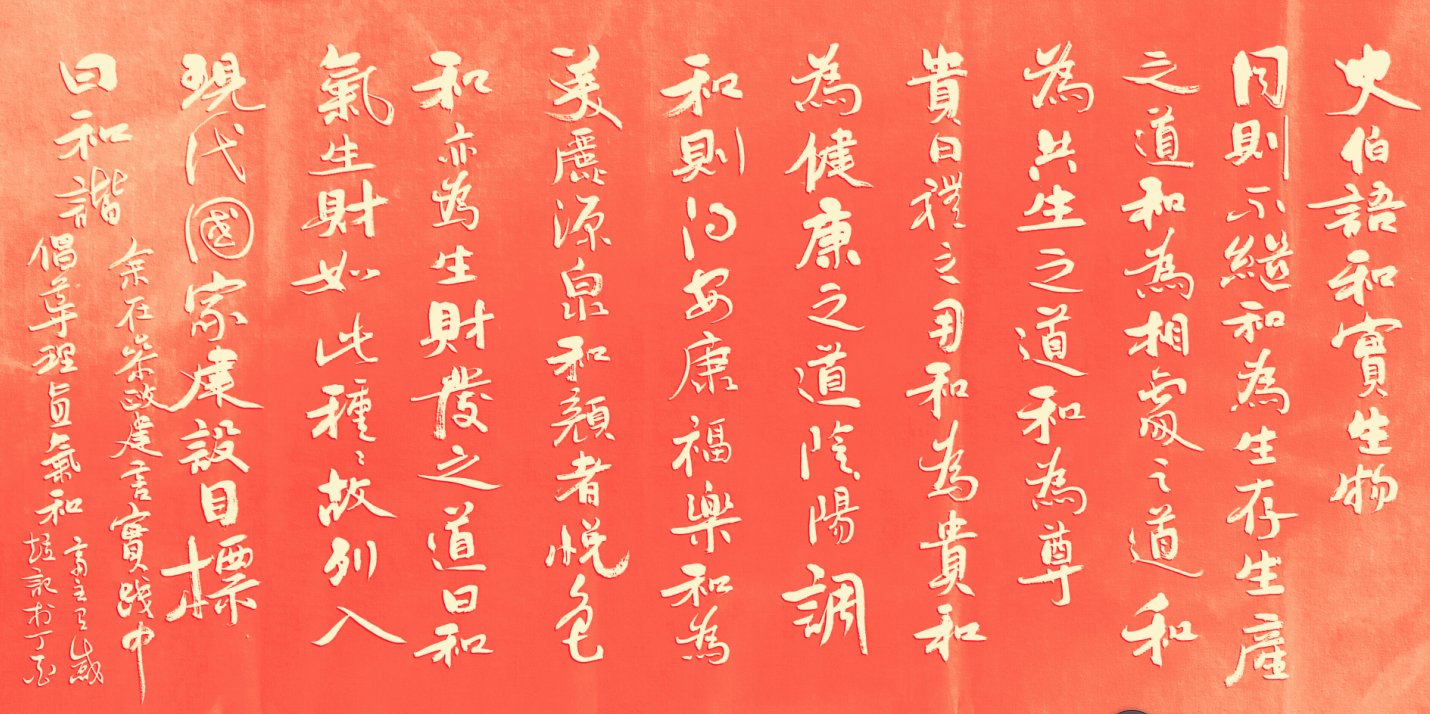 史伯語和實生物
同則不繼和為生存生產
之道和為相處之道和
為共生之道和為尊
貴曰禮之用和為貴和
為健康之道陰陽調
和則得安康福樂和為
美麗源泉和顏者悅色
和亦為生財發之道曰和
氣生財如此種種故列入
現代國家建設目標
曰和諧
余在參政建言實踐中
倡尊理直氣和